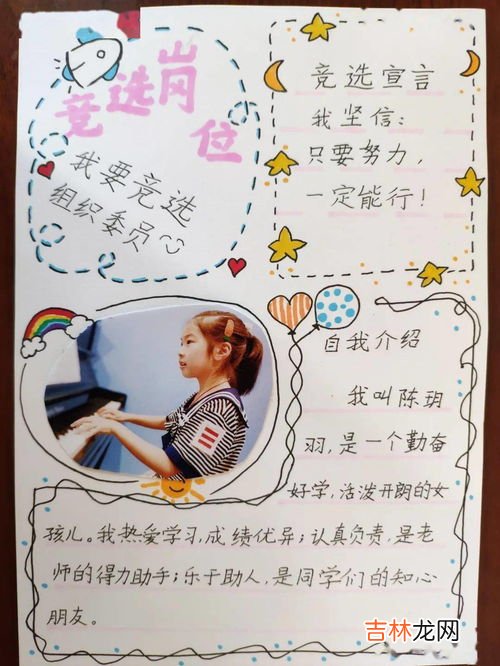 竞选岗位
我要竞选
组织委员
竞选宣言
我坚信：
只要努力，
一定能行！
自我介绍
我叫陈玥
羽，是一个勤奋
好学，活泼开朗的女
孩儿。我热爱学习，成绩优异；认真负责，是老
师的得力助手；乐于助人，是同学们的知心
朋友。
吉林龙网